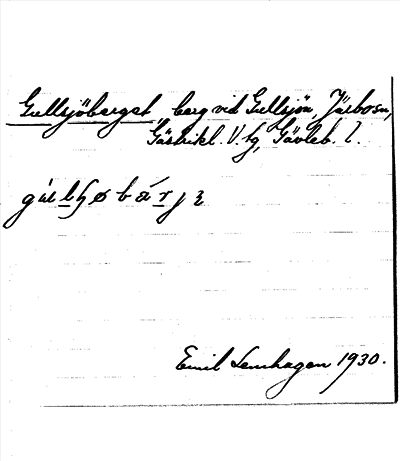 Gullsjöberget, berg vid Gullsjön, Järbo sn,
Gästrikl. V. tg, Gävleb. l.
Emil Lenhagen 1930.